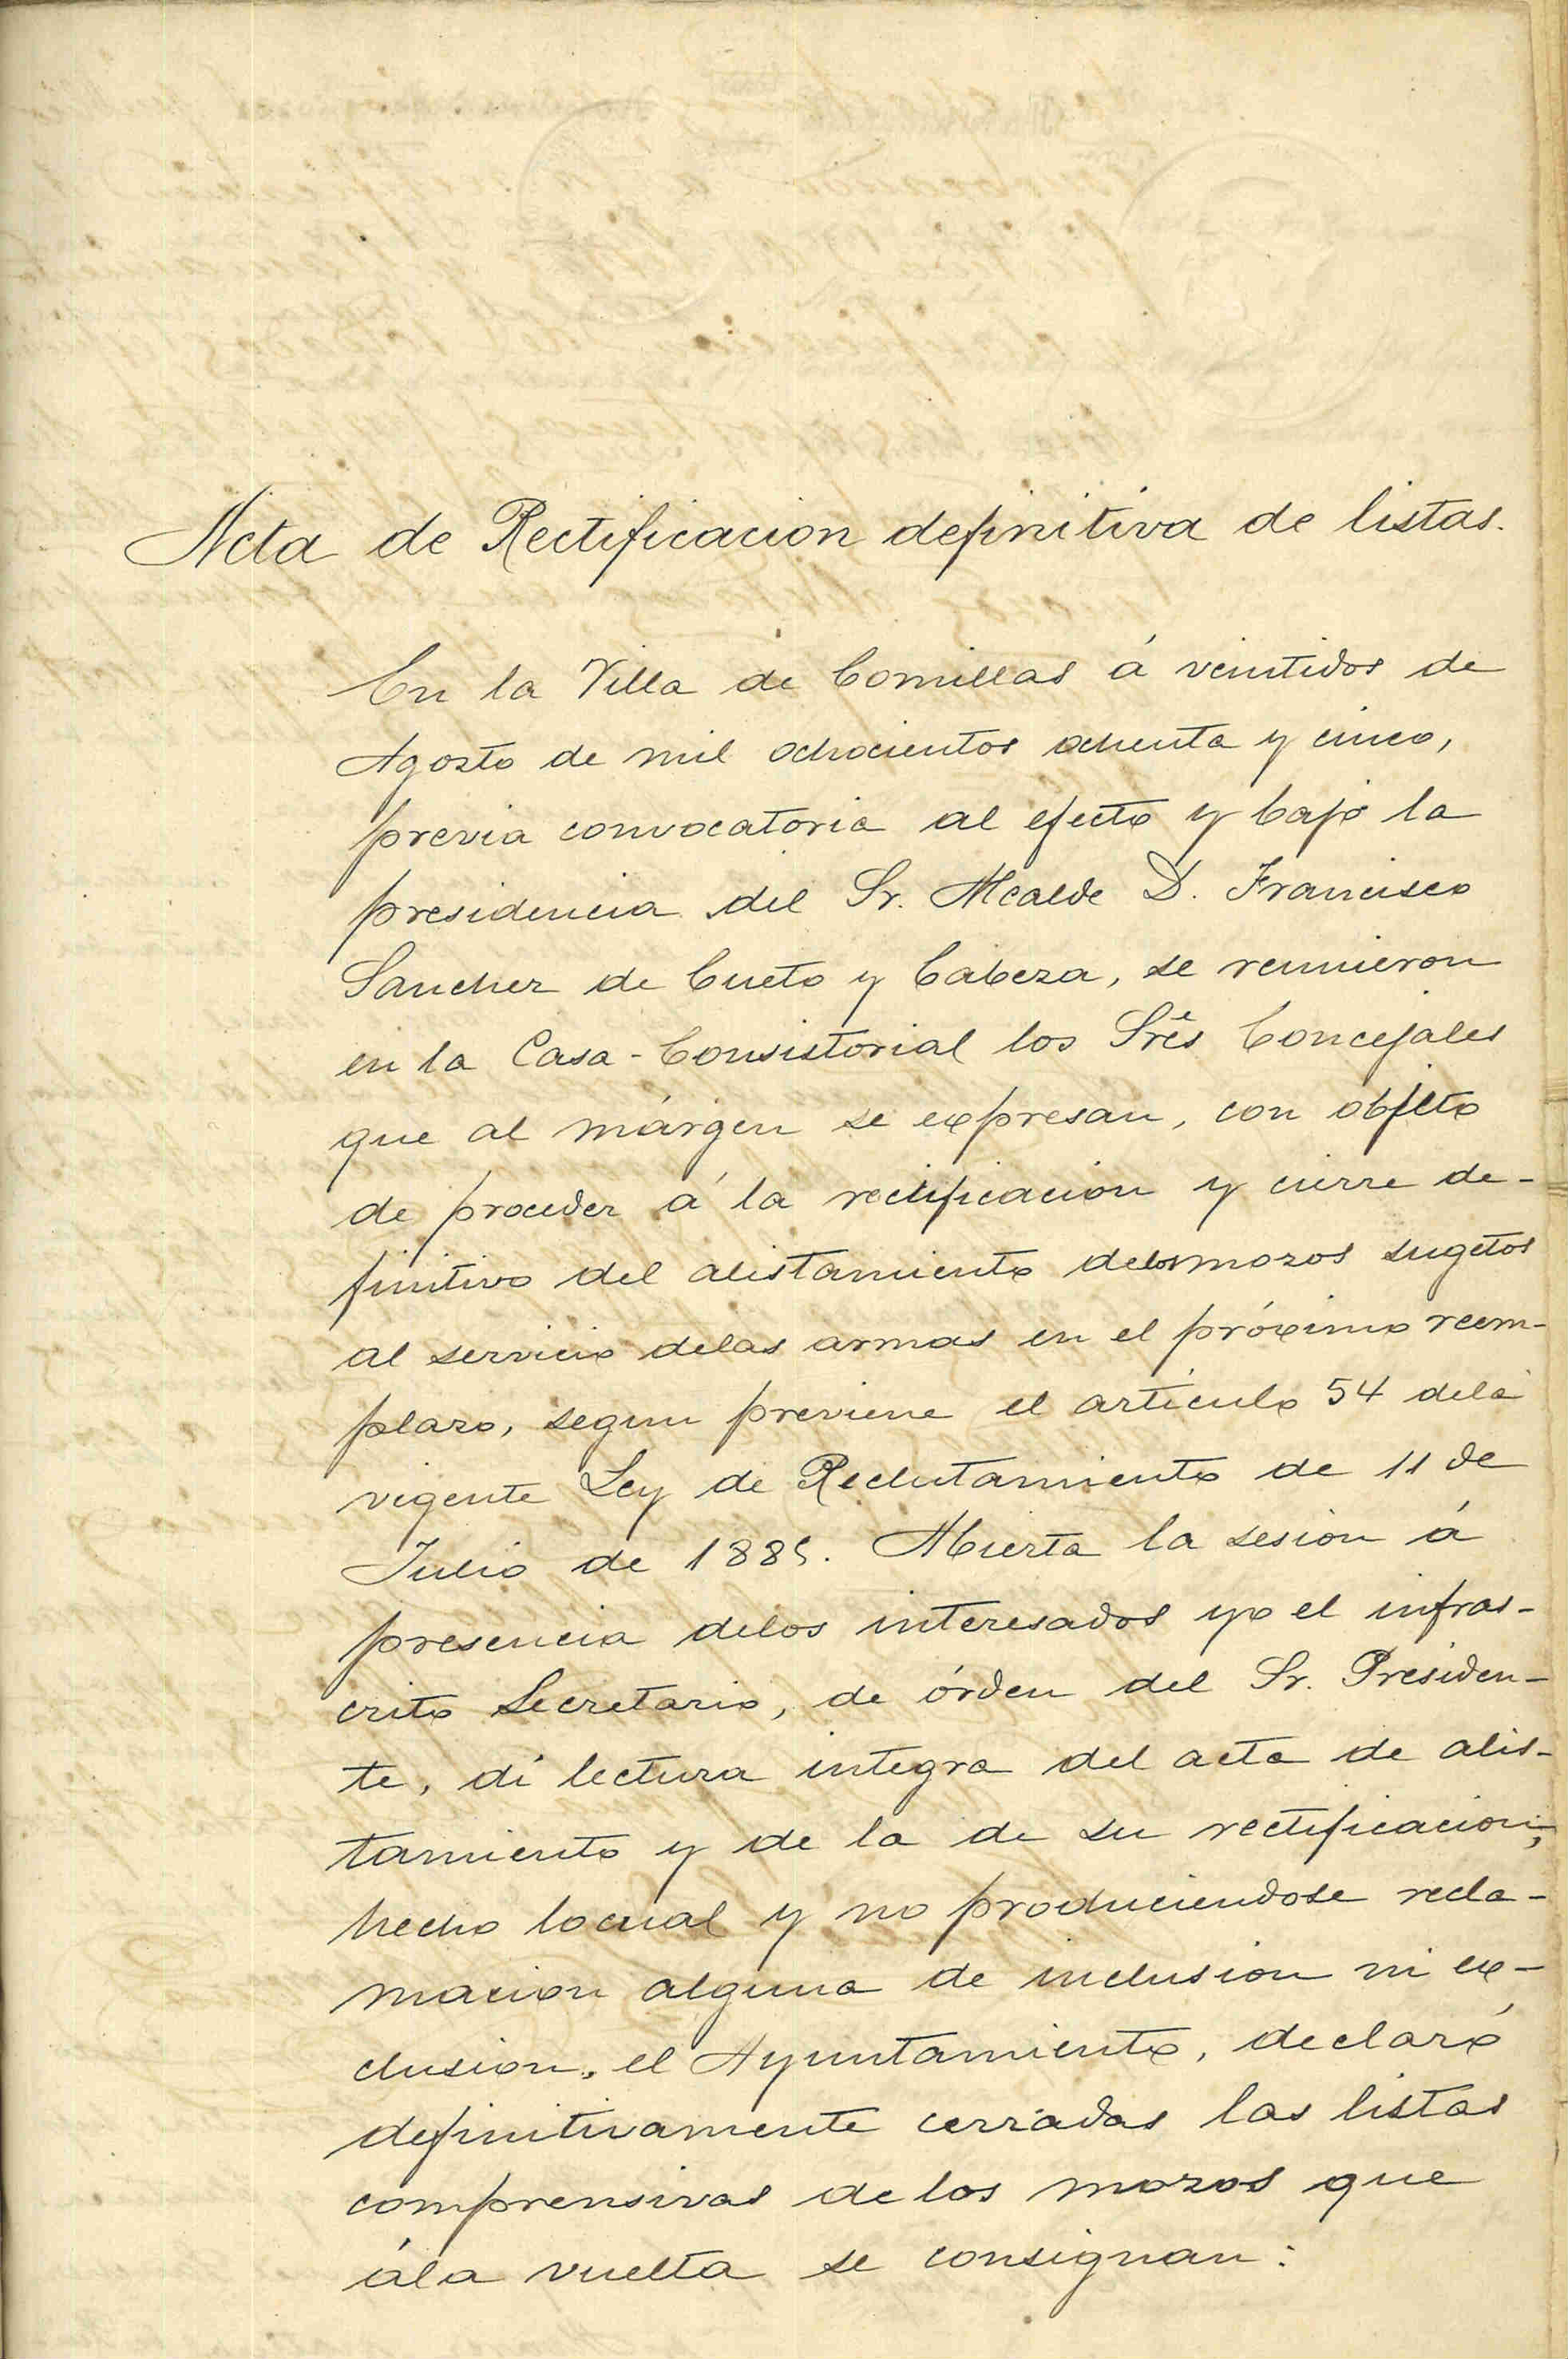 Acta de Rectificacion definitiva de listas.
En la Villa de Comillas á veintidos de
Agosto de mil ochocientos ochenta y cinco,
previa convocatoria al efecto y bajo la
presidencia del Sr. Alcalde D. Francisco
Sanchez de Cueto y Cabeza, se reunieron
en la Casa-Consistorial los Sres Concejales
que al márgen se expresan, con objeto
de proceder á la rectificacion y cierre de-
finitivo del alistamiento delos mozos sugetos
al servicio delas armas en el próximo reem-
plazo, segun previene el artículo 54 dela
vigente Ley de Reclutamiento de 11 de
Julio de 1885. Abierta la sesion á
presencia delos interesados yo el infras-
crito Secretario, de órden del Sr. Presiden-
te, dí lectura integra del acta de alis-
tamiento y de la de su rectificacion;
hecho locual y no produciendose recla-
macion alguna de inclusion ni ex-
clusion, el Ayuntamiento, declaró
definitivamente cerradas las listas
comprensivas de los mozos que
ála vuelta se consignan: